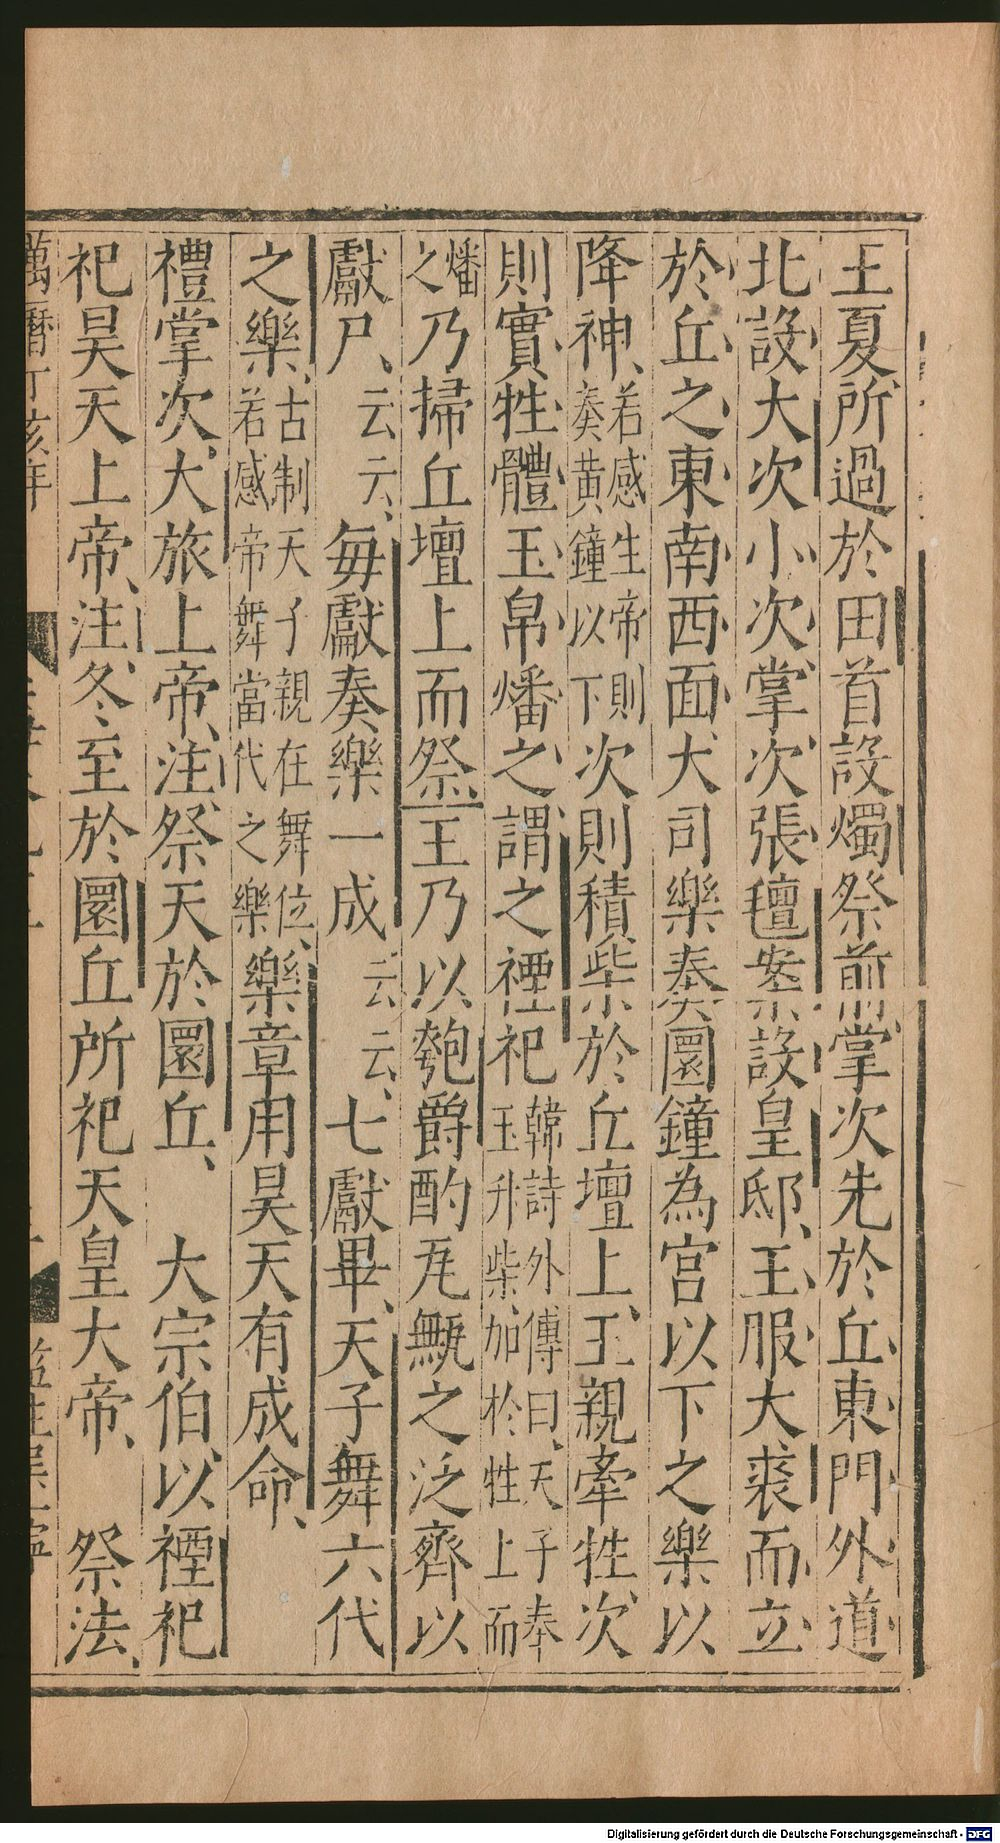 王夏所過於田首設燭祭前掌次先於丘東門外道
北設大次小次掌次張氊案設皇邸王服大裘而立
於丘之東南西面大司樂奏圜鍾為宮以下之樂以
降神若感生帝則奏黃鐘以下次則積柴於丘壇上王親牽牲次
則實牲體玉帛燔之謂之禋祀韓詩外傳曰天子奉玉升柴加於牲上而
燔之乃掃丘壇上而祭王乃以匏爵酌瓦甒之泛齊以
獻尸云云每獻奏樂一成云云七獻畢天子舞六代
之樂古制天子親在舞位若感帝舞當代之樂樂章用昊天有成命
禮掌次大旅上帝注祭天於圜丘 大宗伯以禋祀
祀昊天上帝注冬至於圜丘所祀天皇大帝 祭法
萬曆丁亥年
Digitalisierung gefördert durch die Deutsche Forschungsgemeinschaft - DFG